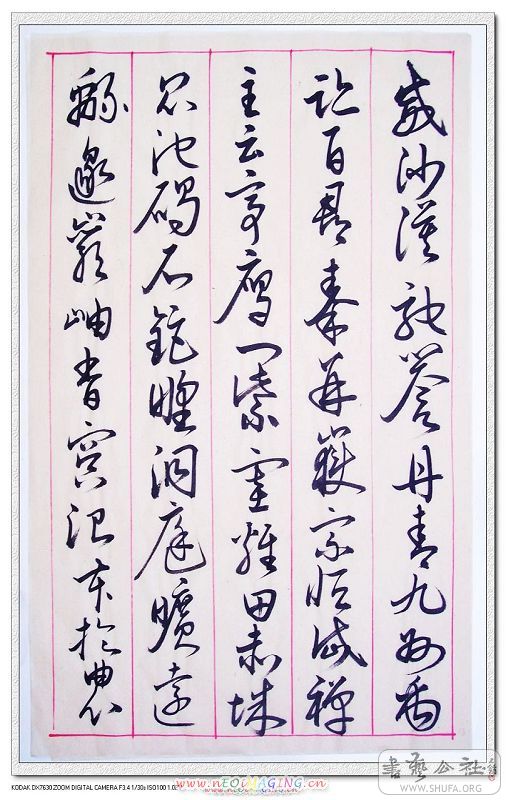 威沙漠馳譽丹青九州禹
跡百郡秦并嶽宗恒岱禪
主云亭雁門紫塞雞田赤城
昆池碣石鉅野洞庭曠遠
緜邈巖岫杳冥治本於農
書藝公社
WWW.SHUFA.ORG
www.nEOiMAGiNG.cn
KODAK DX7630 ZOOM DIGITAL CAMERA F3.4 1/30s ISO100